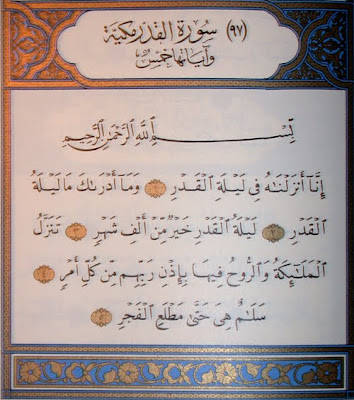 (٩٧) سُورَةُ القَدْرِ مَكِّيَّة
وَآيَاتُهَا خَمْسٌ
بِسْمِ ٱللَّهِ ٱلرَّحْمَٰنِ ٱلرَّحِيمِ
إِنَّآ أَنزَلْنَٰهُ فِى لَيْلَةِ ٱلْقَدْرِ ١ وَمَآ أَدْرَىٰكَ مَا لَيْلَةُ
ٱلْقَدْرِ ٢ لَيْلَةُ ٱلْقَدْرِ خَيْرٌ مِّنْ أَلْفِ شَهْرٍ ٣ تَنَزَّلُ
ٱلْمَلَٰٓئِكَةُ وَٱلرُّوحُ فِيهَا بِإِذْنِ رَبِّهِم مِّن كُلِّ أَمْرٍ ٤
سَلَٰمٌ هِىَ حَتَّىٰ مَطْلَعِ ٱلْفَجْرِ ٥